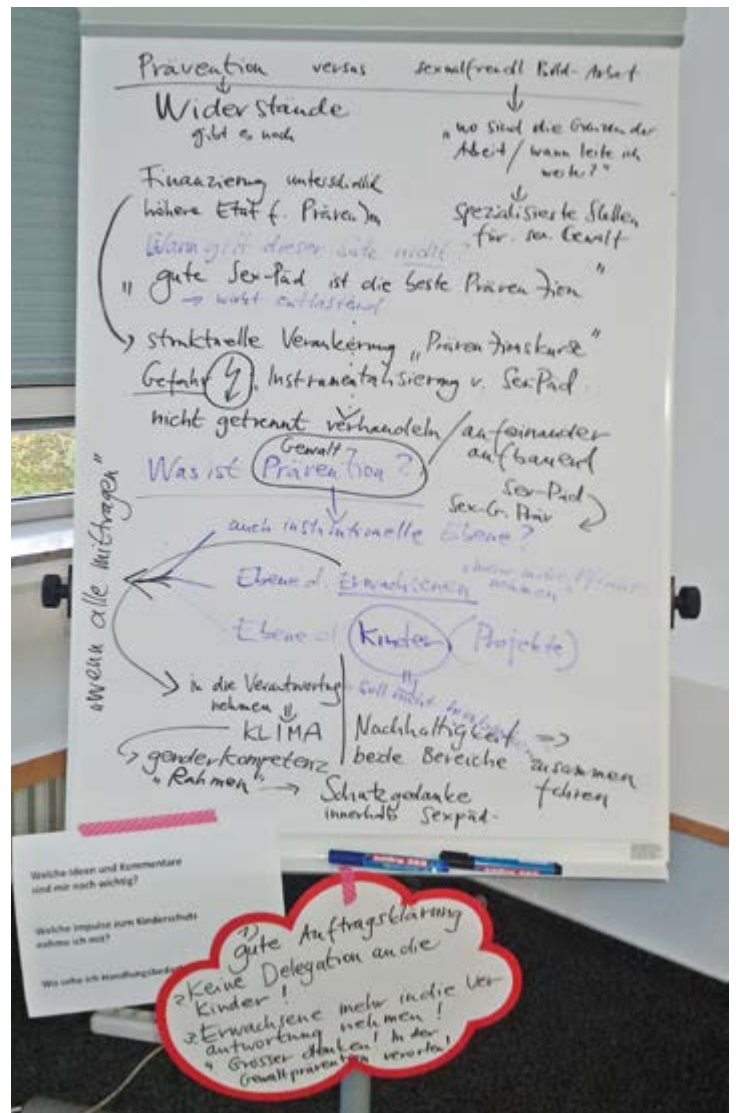 Prävention versus sexualfreundl Bild-Arbeit
Widerstände
gibt es noch
„wo sind die Grenzen der
Arbeit / wann leite ich
weiter?"
spezialisierte Stellen
für sex. Gewalt
Finanzierung unterschiedlich
höhere Etat f. Prävention
Wann gilt dieser nicht?
„gute Sex-Päd ist die beste Prävention"
→ wirkt entlastend
strukturelle Verankerung „Präventionskurse"
Gefahr Instrumentalisierung v. SexPäd.
nicht getrennt verhandeln / aufeinander
aufbauend
Sex-Päd
Sex-G. Präv
Gewalt?
Was ist Prävention?
auch institutionelle Ebene?
Ebene d. Erwachsenen
nehmen"
Ebene d. Kinder (Projekte)
„wenn alle mittragen"
in die Verantwortung
nehmen
KLIMA
genderkompetenz
„Rahmen" → Schutzgedanke
innerhalb Sexpäd-
soll nicht
Nachhaltigkeit ⇒
beide Bereiche zusammen
führen
Welche Ideen und Kommentare
sind mir noch wichtig?
Welche Impulse zum Kinderschutz
nehme ich mit?
Wo sehe ich
1) gute Auftragsklärung
2. Keine Delegation an die
Kinder!
3. Erwachsene mehr in die Ver
antwortung nehmen!
4 Grösser denken! In der
Gewaltprävention verorten!